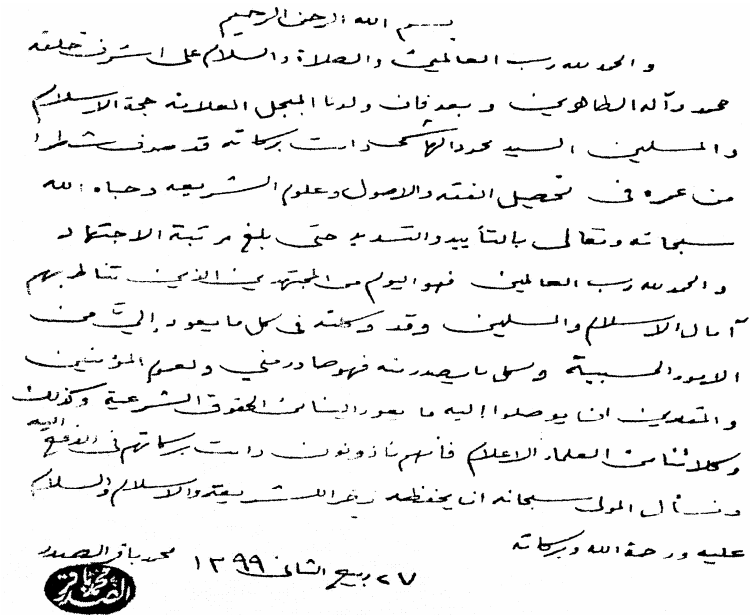 بسم الله الرحمن الرحيم
و الحمد لله رب العالمين والصلاة والسلام على اشرف خلقه
محمد وآله الطاهرين وبعد فان ولدنا المبجل العلامة حجة الاسلام
والمسلمين السيد محمود الهاشمي دامت بركاته قد صرف شطرا
من عمره في تحصيل الفقه والاصول وعلوم الشريعه وحباه الله
سبحانه وتعالى بالتأييد والتسديد حتى بلغ مرتبة الاجتهاد
والحمد لله رب العالمين فهو اليوم من المجتهدين الذين تناط بهم
آمال الاسلام والمسلمين وقد وكلته في كل ما يعود إليّ من
الامور الحسبية وكل ما يصدر منه فهو صادر مني ولعموم المؤمنين
والمقلدين ان يوصلوا إليه ما يعود الينا من الحقوق الشرعية وكذلك
وكلائنا من العلماء الاعلام فانهم مأذونون دامت بركاتهم في الدفع اليه
ونسأل المولى سبحانه ان يحفظه ذخرا للشريعة والاسلام والسلام
عليه ورحمة الله وبركاته
٢٧ ربيع الثاني ١٣٩٩ محمد باقر الصدر
محمد باقر الصدر